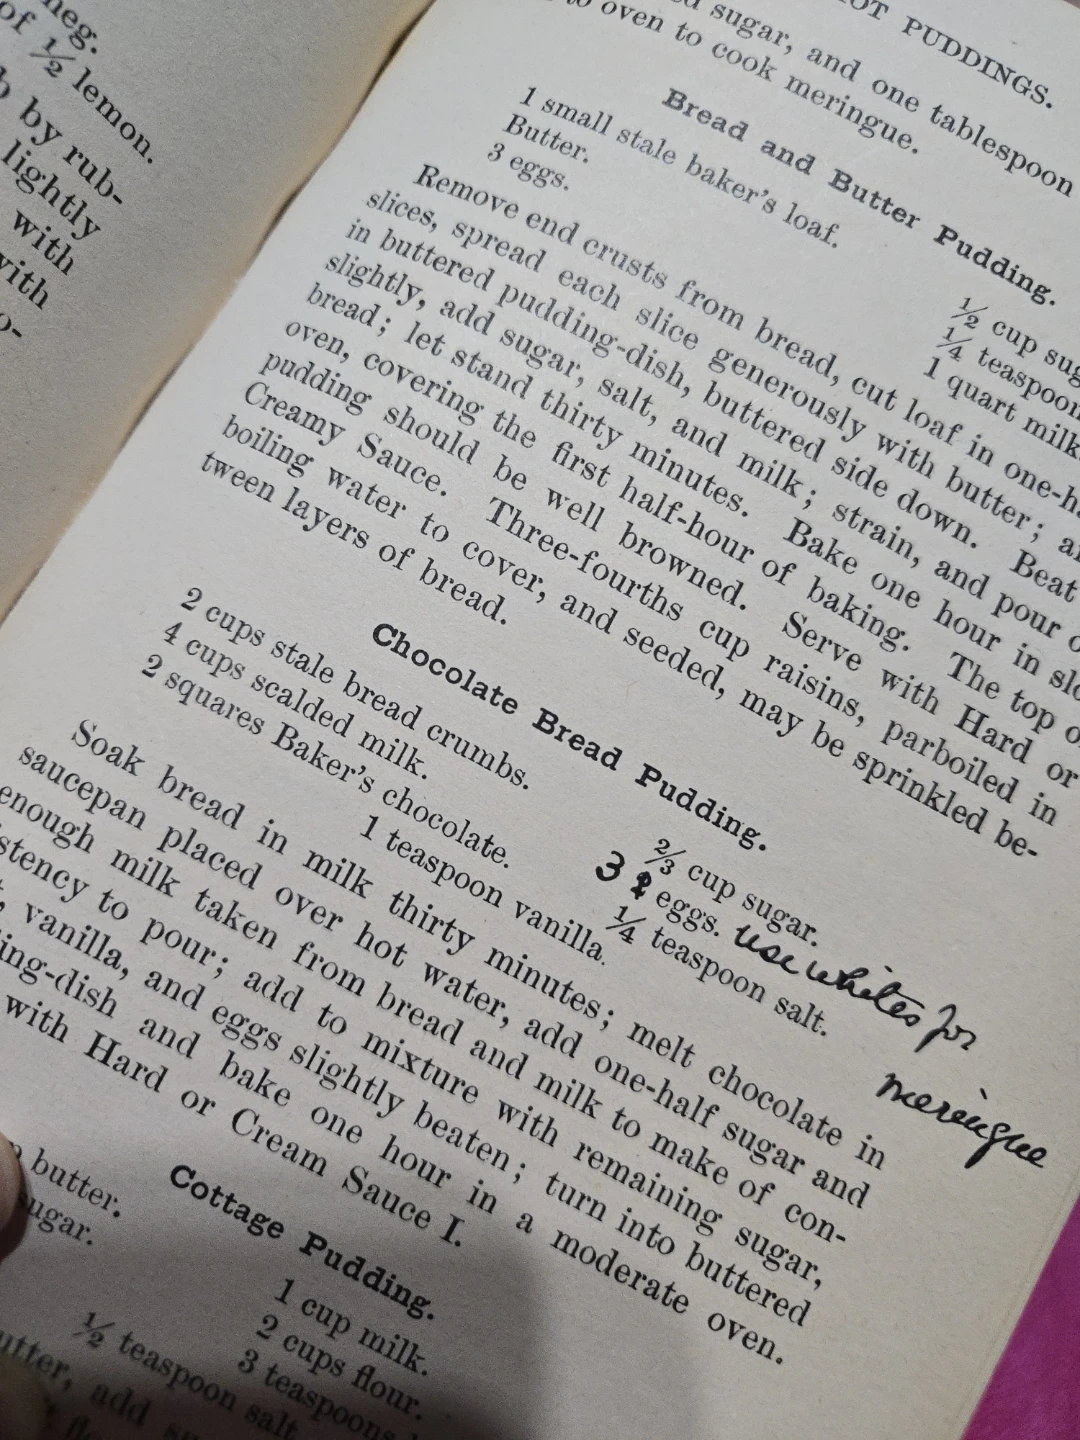 neg.
of ½ lemon.
by rub-
lightly
with
with
o-
HOT PUDDINGS.
sugar, and one tablespoon
to oven to cook meringue.
Bread and Butter Pudding.
1 small stale baker's loaf.
Butter.
3 eggs.
½ cup sug
¼ teaspoon
1 quart milk
Remove end crusts from bread, cut loaf in one-h
slices, spread each slice generously with butter; a
in buttered pudding-dish, buttered side down. Beat
slightly, add sugar, salt, and milk; strain, and pour o
bread; let stand thirty minutes. Bake one hour in slo
oven, covering the first half-hour of baking. The top o
pudding should be well browned. Serve with Hard or
Creamy Sauce. Three-fourths cup raisins, parboiled in
boiling water to cover, and seeded, may be sprinkled be-
tween layers of bread.
Chocolate Bread Pudding.
2 cups stale bread crumbs.
4 cups scalded milk.
2 squares Baker's chocolate.
⅔ cup sugar.
3 2 eggs. use whites for
meringue
¼ teaspoon salt.
1 teaspoon vanilla.
Soak bread in milk thirty minutes; melt chocolate in
saucepan placed over hot water, add one-half sugar and
enough milk taken from bread and milk to make of con-
istency to pour; add to mixture with remaining sugar,
vanilla, and eggs slightly beaten; turn into buttered
ing-dish and bake one hour in a moderate oven.
with Hard or Cream Sauce I.
Cottage Pudding.
butter.
sugar.
1 cup milk.
2 cups flour.
3 teaspoons
½ teaspoon salt
utter, add